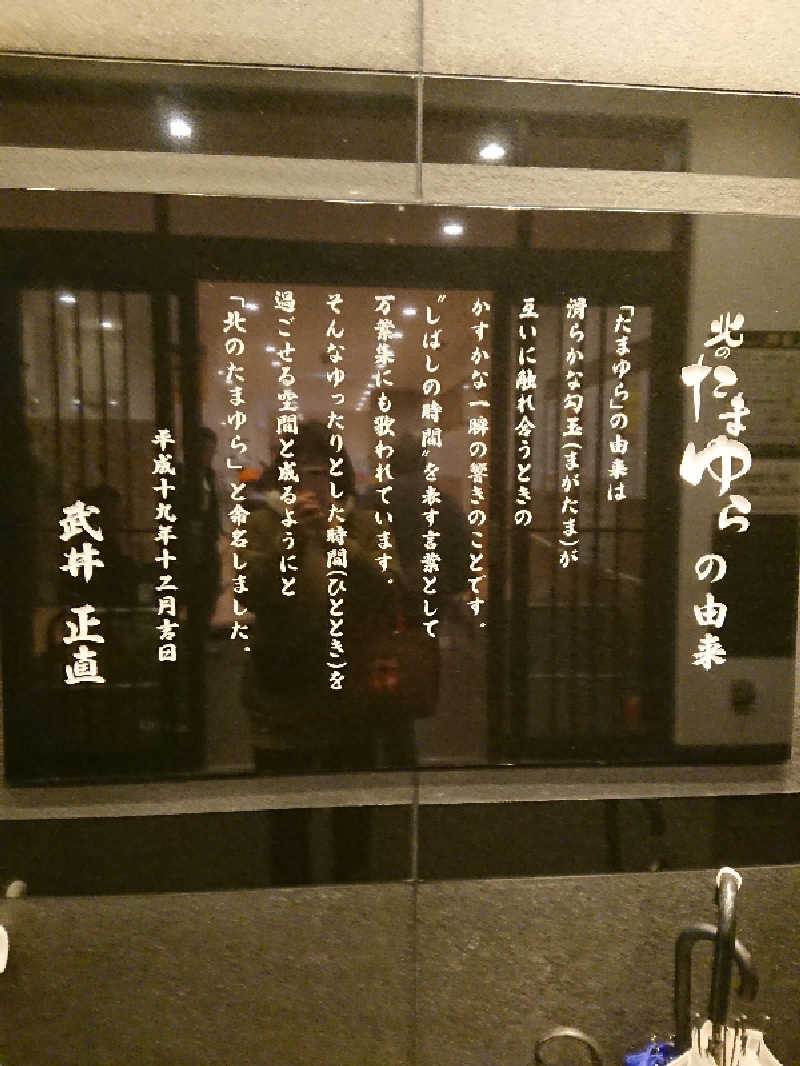 北のたまゆらの由来
「たまゆら」の由来は
滑らかな勾玉(まがたま)が
互いに触れ合うときの
かすかな一瞬の響きのことです。
"しばしの時間"を表す言葉として
万葉集にも歌われています。
そんなゆったりとした時間(ひととき)を
過ごせる空間と成るようにと
「北のたまゆら」と命名しました。
平成十九年十二月吉日
武井 正直